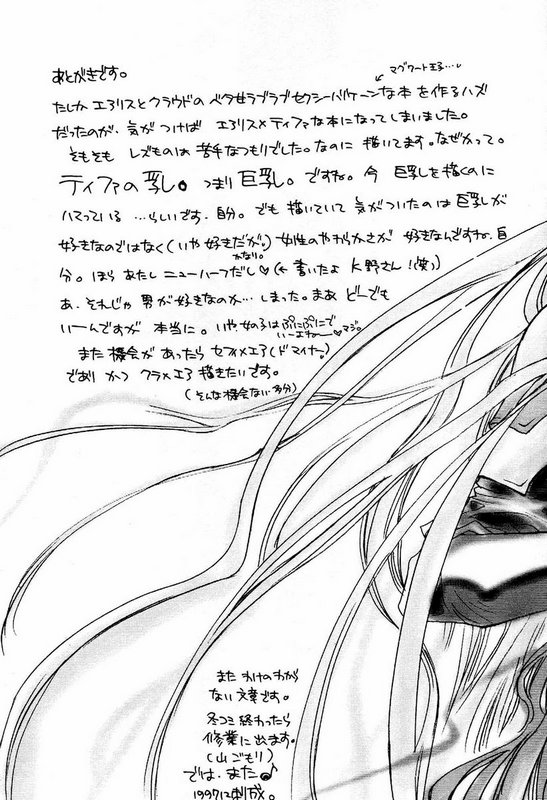 あとがきです。
マグワート王子…
たしか エアリスとクラウドの ベタ甘ラブラブセクシーバリケーンな本を作るハズ
だったのが、気がつけば エアリス×ティファな本になってしまいました。
そもそも レズものは苦手なつもりでした。なのに 描いてます。なぜかって。
ティファの乳。つまり巨乳。ですね。今 巨乳を描くのに
ハマっている …らしいです。自分。でも 描いていて 気がついたのは 巨乳が
好きなのではなく(いや好きだが。) 女性のやわらかさが 好きなんですね。自
かなり。
分。ほら あたし ニューハーフだし♡(←書いたよ 大野さん!(笑)
あ、それじゃ 男が好きなのか… しまった。まあ どーでも
いーんですが 本当に。いや女の子はぷにぷにで
いーよねー♡マジ。
また 機会が あったら セフィ×エア(ドマイナー)
であり かつ クラ×エア 描きたいです。
(そんな機会ない 多分)
また わけのわから
ない 文章です。
冬コミ 終わったら
修業に出ます。
(山ごもり)
では、また♪
1997.12